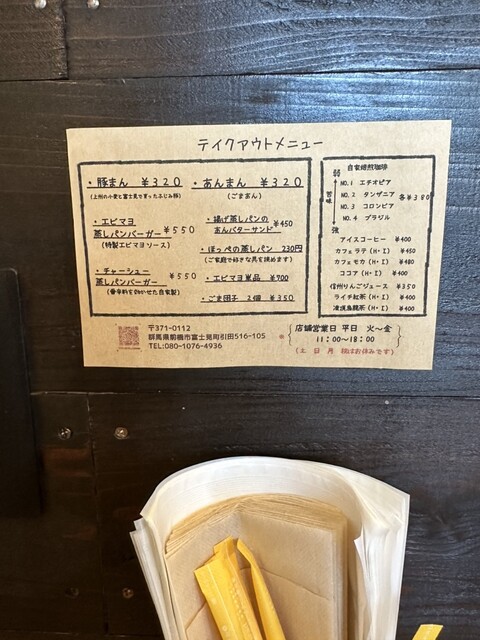 テイクアウトメニュー
・豚まん ￥320
(上州の小麦と富士見で育ったふじみ豚)
・あんまん ￥320
(ごまあん)
・エビマヨ
蒸しパンバーガー ￥550
(特製エビマヨソース)
・揚げ蒸しパンの
あんバターサンド ￥450
・ほっぺの蒸しパン 230円
(ご家庭で好きな具を挟めます)
・チャーシュー
蒸しパンバーガー ￥550
(香辛料を効かせた自家製)
・エビマヨ単品 ￥700
・ごま団子 2個 ￥350
自家焙煎珈琲
弱
NO.1 エチオピア
NO.2 タンザニア
NO.3 コロンビア
NO.4 ブラジル
各￥380
強
アイスコーヒー ￥400
カフェラテ(H・I) ￥450
カフェモカ(H・I) ￥480
ココア(H・I) ￥400
信州りんごジュース ￥350
ライチ紅茶(H・I) ￥400
凍頂烏龍茶(H・I) ￥400
〒371-0112
群馬県前橋市富士見町引田516-105
TEL:080-1076-4936
店舗営業日 平日 火～金
11:00～18:00
(土 日 月 祝はお休みです)